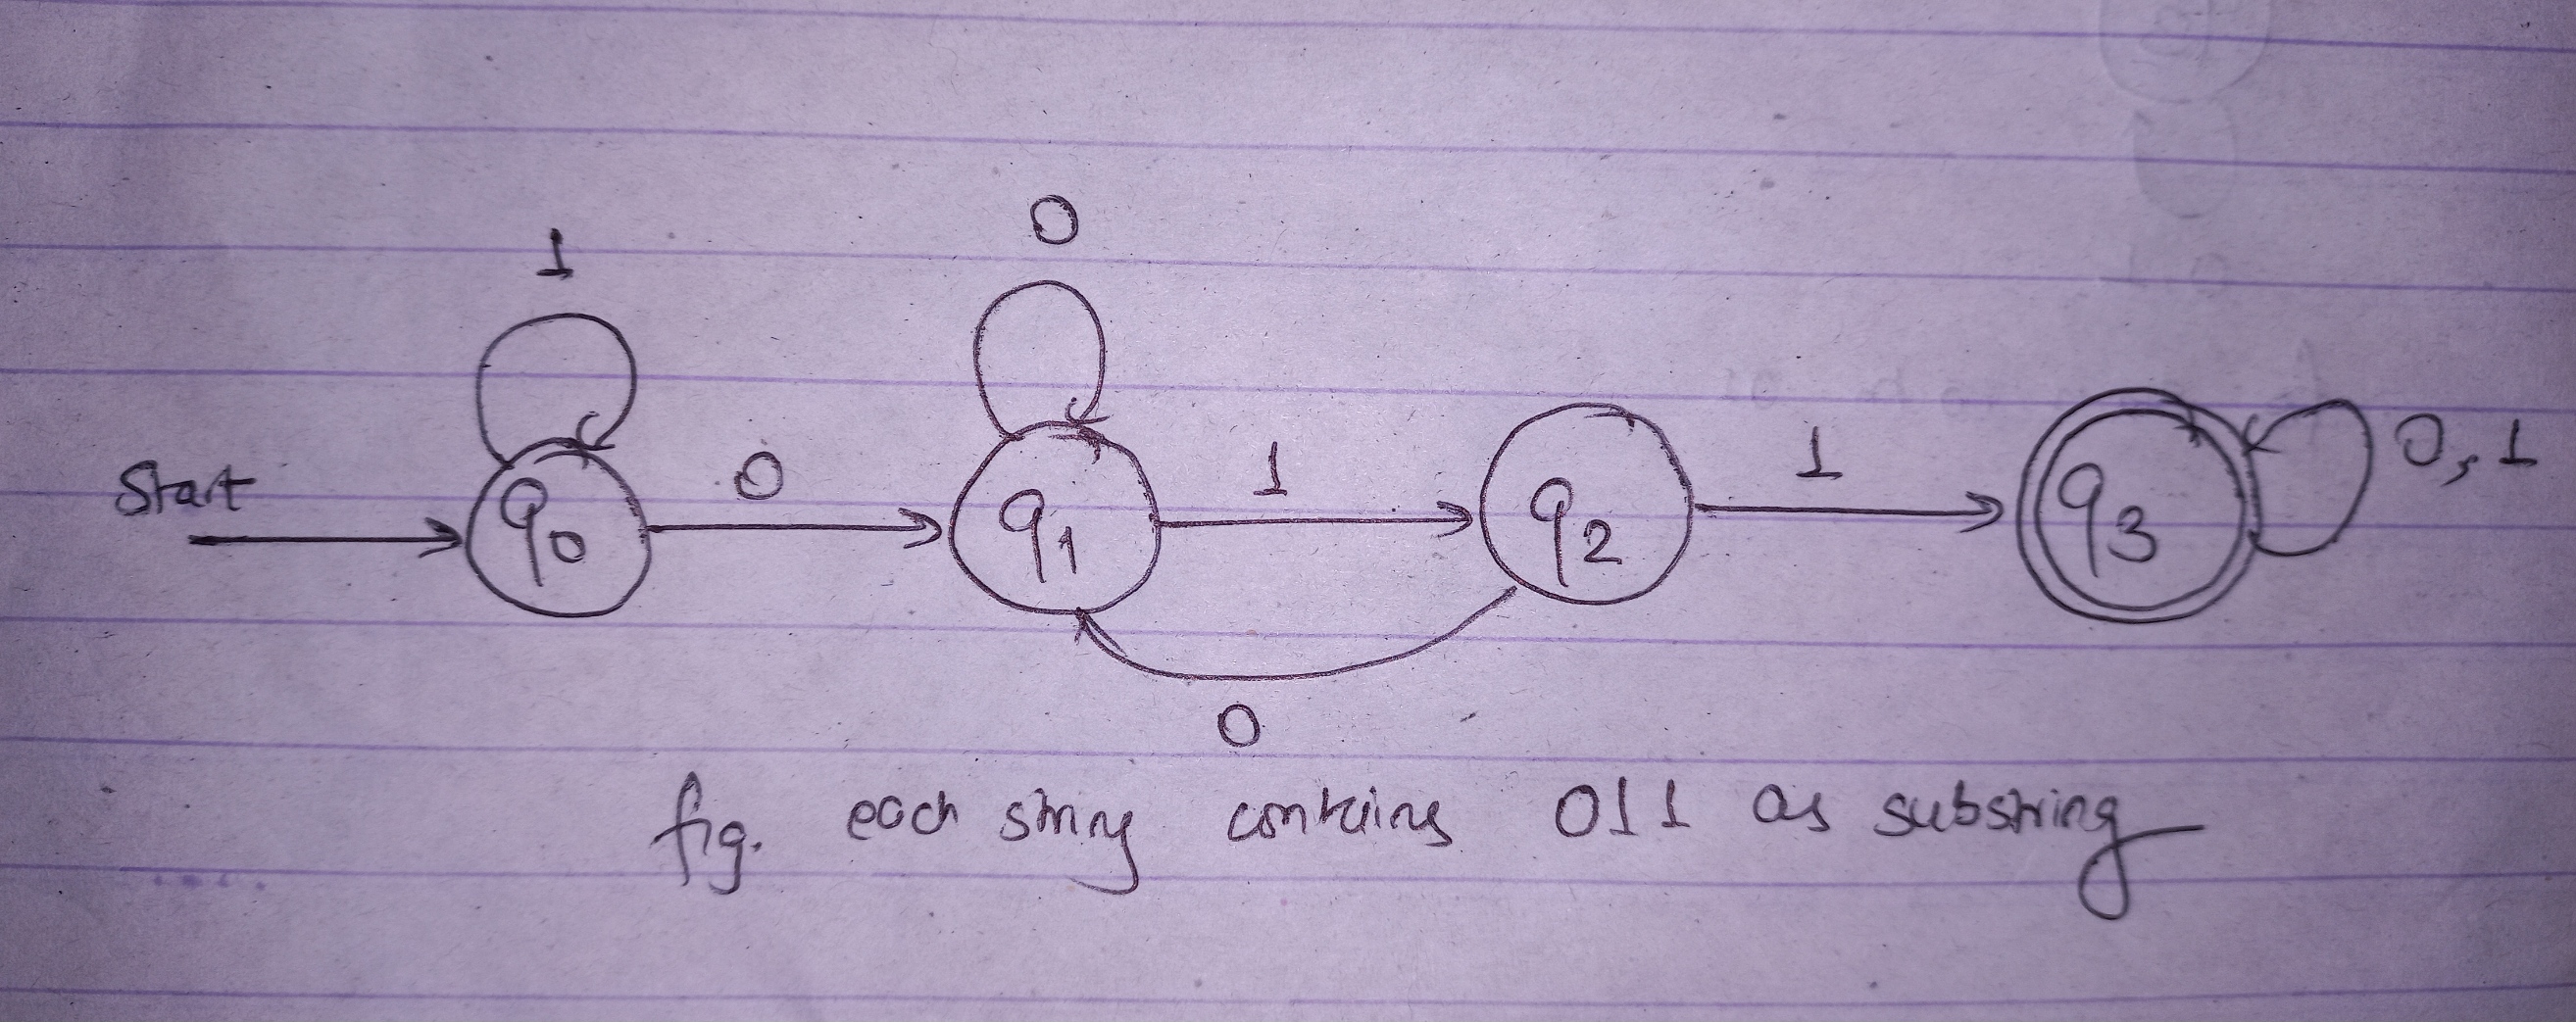 0
1
0
1
1
0,1
Start
q0
q1
q2
q3
0
fig. each string contains 011 as substring